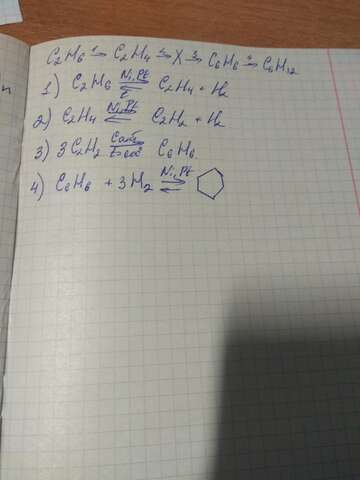 C2H6 1→ C2H4 2→ X 3→ C6H6 4→ C6H12
1) C2H6 Ni,Pt ⇌ t C2H4 + H2
2) C2H4 Ni,Pt ⇌ C2H2 + H2
3) 3C2H2 Cакт → t=600° C6H6
4) C6H6 + 3H2 Ni,Pt ⇌